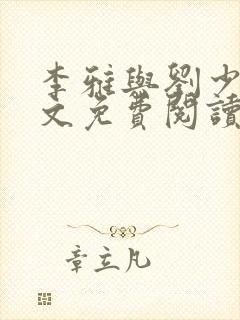 李雅與劉少
文免費閱讀
章立凡